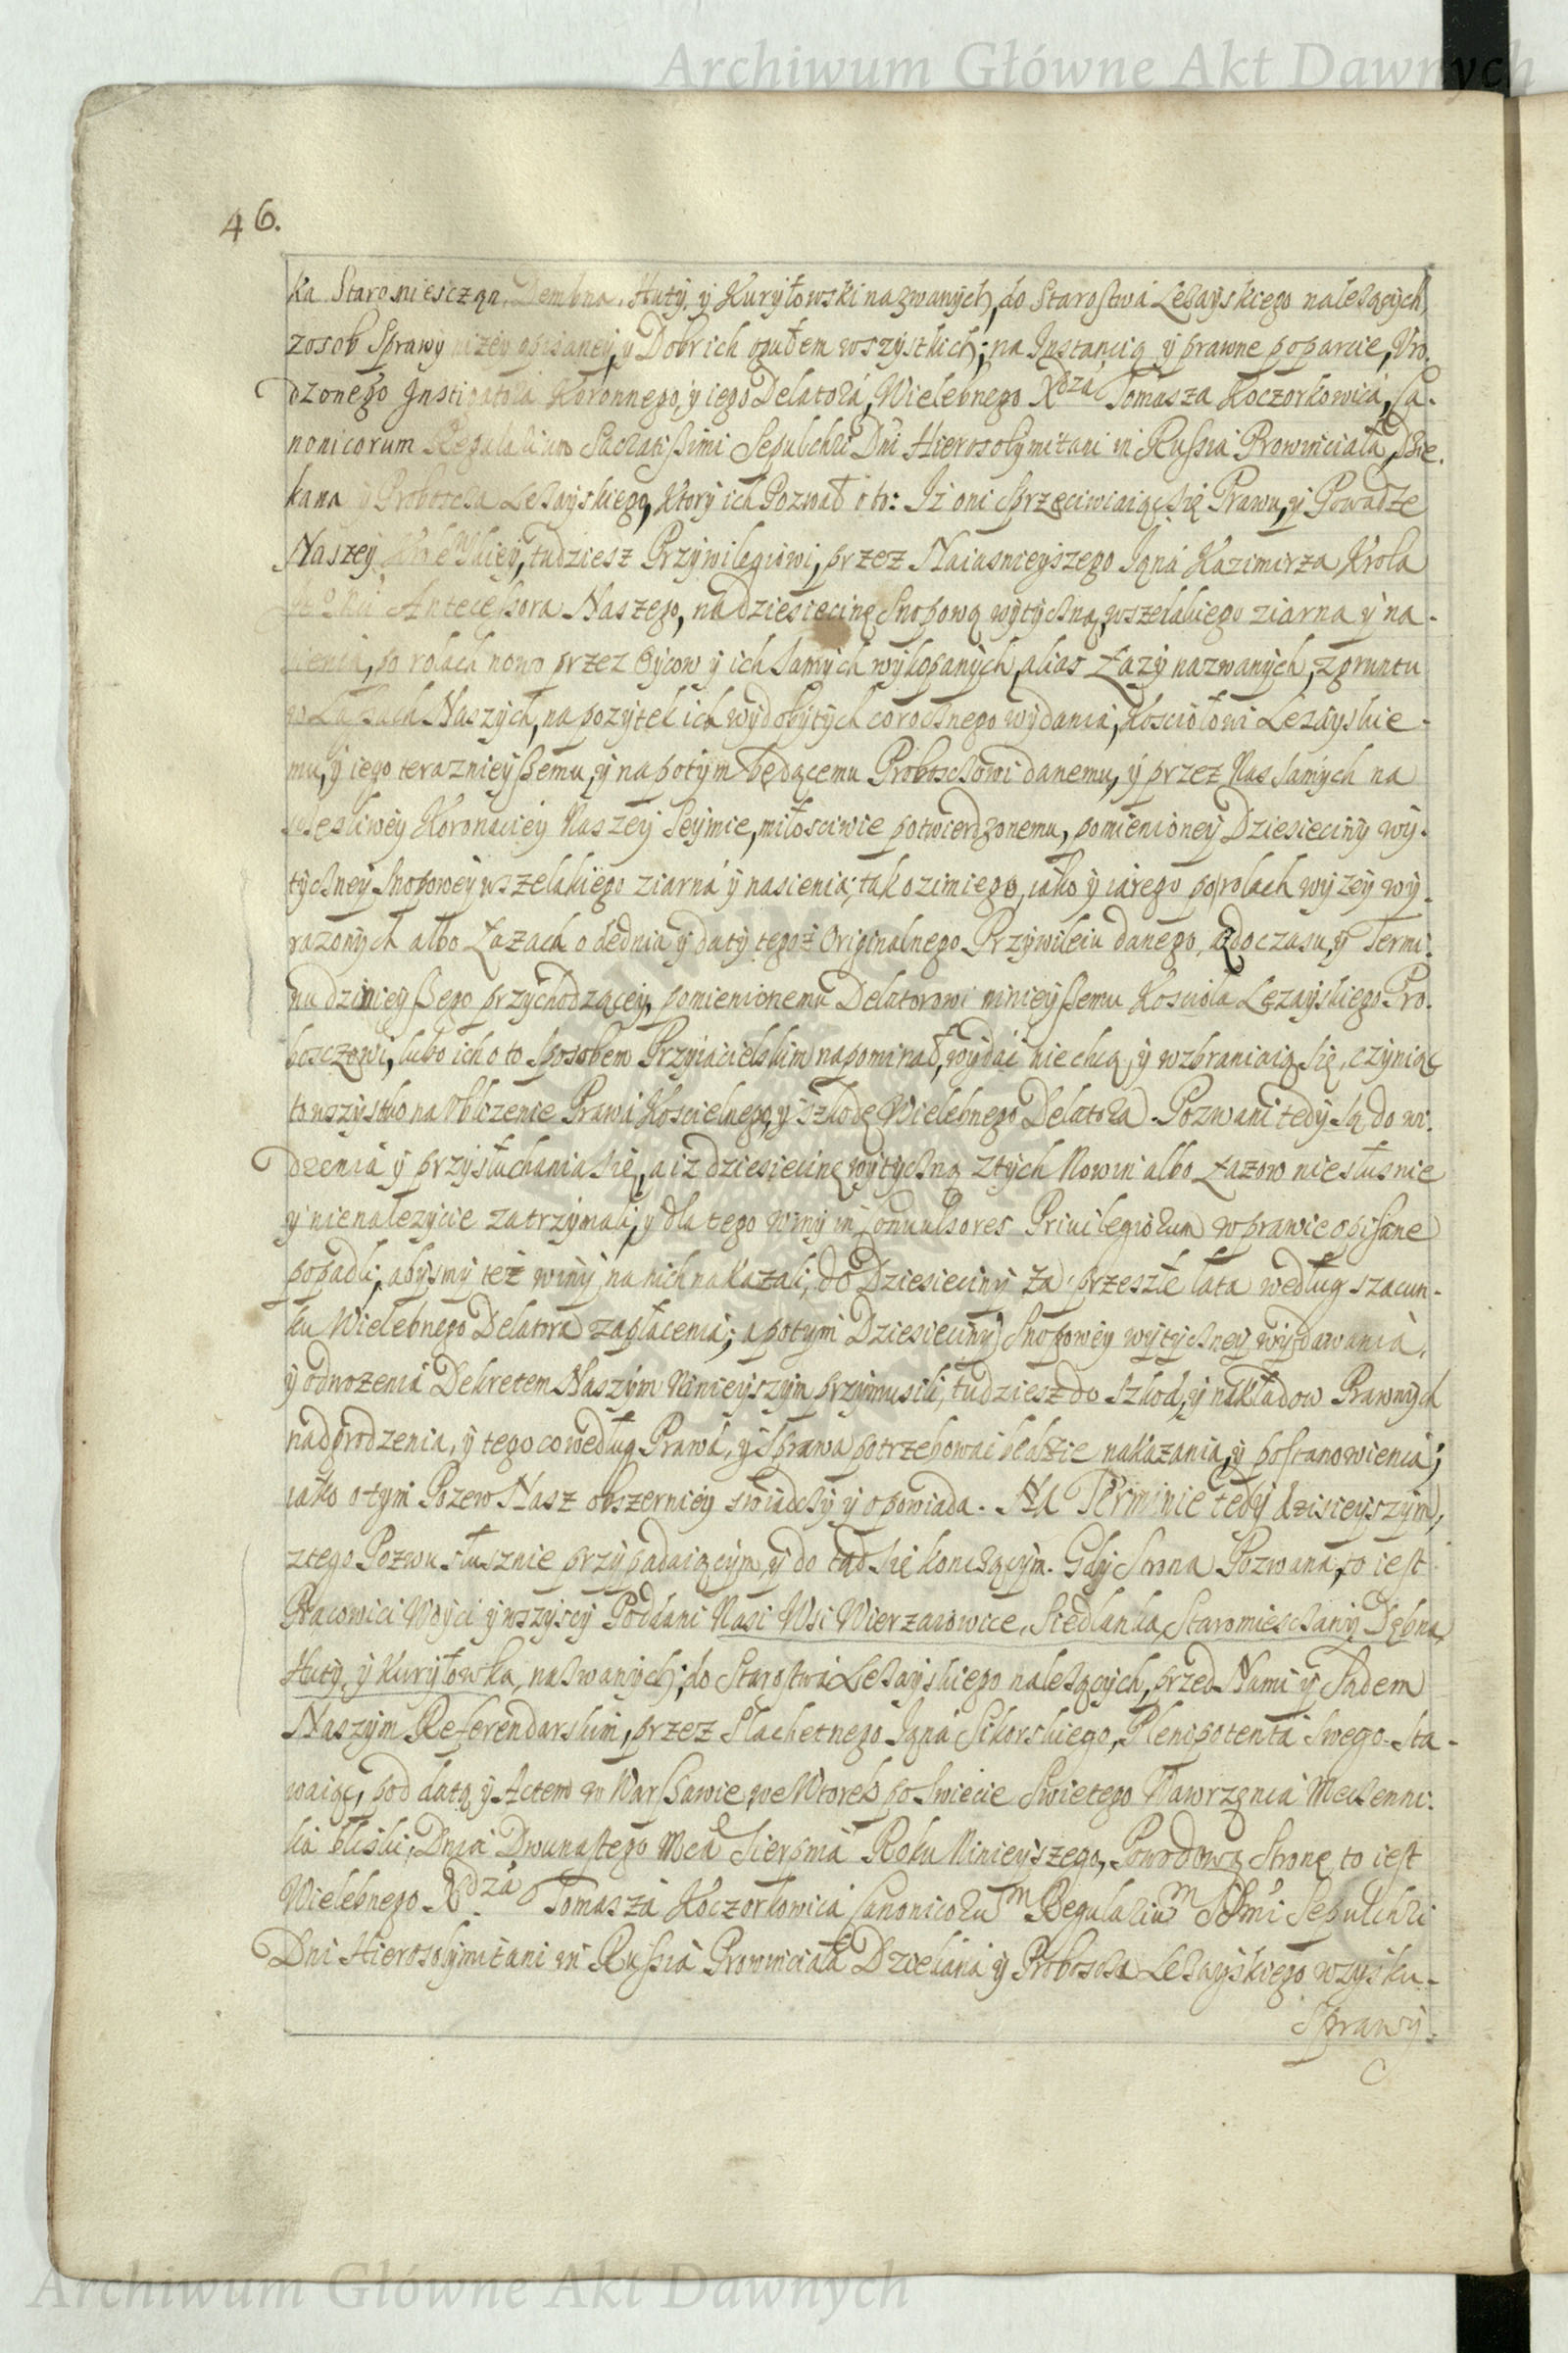 Archiwum Główne Akt Dawnych
46.
ka Staromiesczan, Dembna, Huty, y Kuryłowski nazwanych, do Starostwá Leżayskiego należących
zosob Sprawy niżey opisaney, y Dobr ich ogułem wszystkich; na Instancią y prawne poparcie, Vro-
dzonego Instigatorá Koronnego, y iego Delatorá, Wielebnego Xdzá Tomasza Koczorkowicá, Ca-
nonicorum Regularium Sacratissimi Sepulchri Dni Hierosolymitani in Russia Prowinciałá, Dzie-
kana y Proboscza Leżayskiego, Ktory ich Pozwał o to: Iż oni Sprzeciwiaiąc się Prawu, y Powadze
Naszey Krolewskiey, tudziesz Przywilegiowi, przez Naiasnieyszego Iąná Kazimirza Krola
Antecessora Naszego, na dziesięcinę Snopową wytyczną, wszelakiego ziarna y na-
sienia, po rolach nowo przez Oycow y ich samych wykopanych, alias Łazy nazwanych, z gruntu
w Lasach Naszych, na pożytek ich wydobytych corocznego wydania, Kosciołowi Leżayskie-
mu, y iego teraznieyszemu, y na potym będącemu Proboszczowi danemu, y przez Nas samych na
sczęsliwey Koronaciey Naszey Seymie, miłosciwie potwierdzonemu, pomienioney Dziesięciny wy-
tyczney Snopowey wszelakiego ziarná y nasienia; tak ozimiego, iáko y iárego po rolach wyżey wy-
rażonych albo Łazach odednia y daty tegoż Originalnego Przywileiu danego, aż do czasu, y Termi-
nu dzinieyszego przychodzącey, pomienionemu Delatorowi ninieyszemu Koscioła Leżayskiego Pro-
bosczowi, lubo ich o to sposobem Przyiacielskim napominał, wydać nie chcą, y wzbraniaią się, czyniąc
to wszystko na Ubliżenie Prawá Koscielnego, y Szkodę Wielebnego Delatora. Pozwani tedy są do wi-
dzenia y przysłuchania się, a iż dziesięcinę wytyczną z tych Nowin albo Łazow niesłusnie
y nienależycie zatrzymali, y dla tego winy in Conuulsores Priuilegiorum w prawie opisane
popadli; abysmy też winy na nich nakazali, do Dziesięciny za przeszłe lata według szacun-
ku Wielebnego Delatora zapłacenia; a potym Dziesięciny Snopowey wytyczney wydawania,
y odwożenia Dekretem Naszym Ninieyszym przymusili, tudziesz do szkod, y nakładow Prawnych
nadgrodzenia, y tego co według Prawá, y Sprawa potrzebować będzie nakazania, y postanowienia;
iáko o tym Pozew Nasz obszerniey swiadczy y opowiada. Na Terminie tedy dzisieyszym,
z tego Pozwu słusznie przypadaiącym, y do tąd się konczącym. Gdy Strona Pozwana, to iest
Pracowici Woyci y wszyscy Poddani Nasi Wsi Wierzawice, Siedlanka, Staromiesczany, Dębna,
Huty, y Kuryłowka, nazwanych; do Starostwá Leżayskiego należących, przed Nami y Sądem
Naszym Referendarskim, przez Slachetnego Iąná Sikorskiego, Plenipotentá swego sta-
waiąc, pod datą y Actem w Warszawie, we Wtorek po Swięcie Swiętego Wawrzęnca Męczenni-
ka bliski, Dnia Dwunastego Mca Sierpnia Roku Ninieyszego, Powodową Stronę to iest
Wielebnego Xdzá Tomaszá Koczorkowicá Canonicorum Regularium SSmi Sepulchri
Dni Hierosolymitani in Russia Prowinciałá Dziekaná y Proboscza Leżayskiego wzysku-
Sprawy.
Archiwum Główne Akt Dawnych